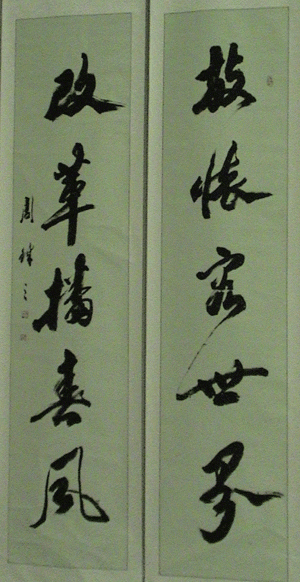 放懷容世界
改革播春風
周
之